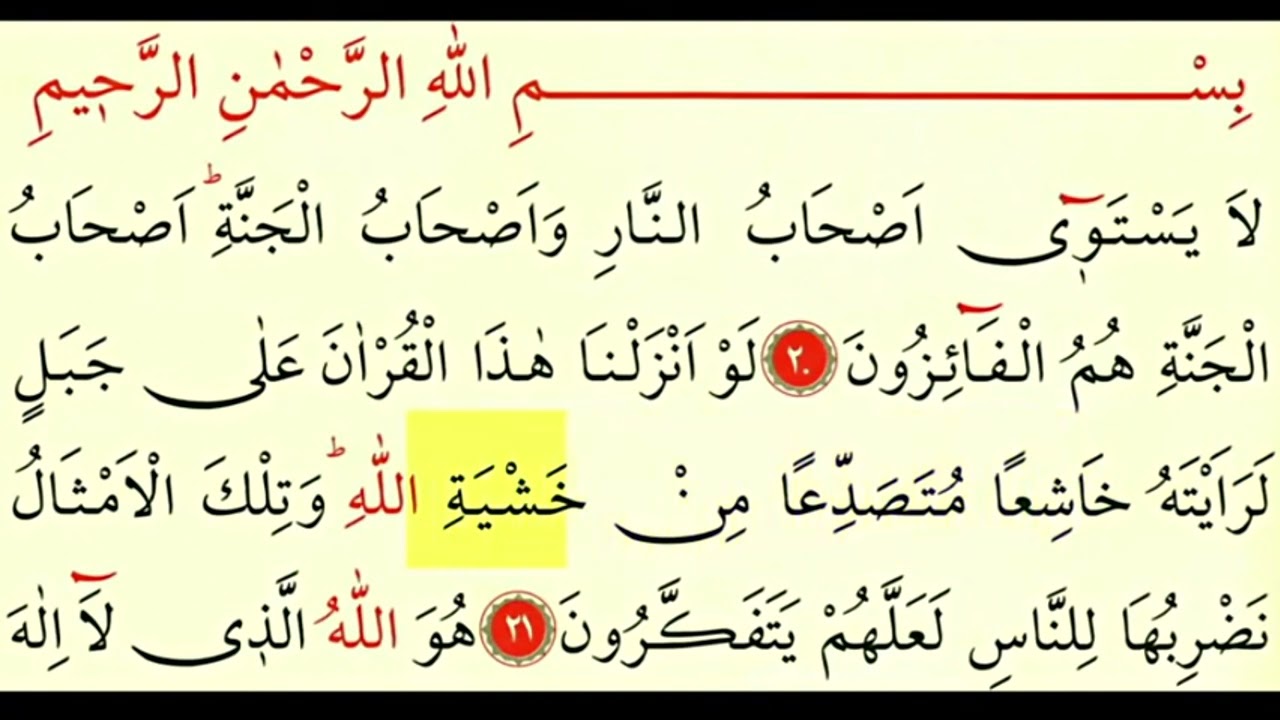 بِسْــــــــــــــــــمِ اللّٰهِ الرَّحْمٰنِ الرَّحٖيمِ
لَا يَسْتَوٖٓى اَصْحَابُ النَّارِ وَاَصْحَابُ الْجَنَّةِؕ اَصْحَابُ
الْجَنَّةِ هُمُ الْفَٓائِزُونَ ٢٠ لَوْ اَنْزَلْنَا هٰذَا الْقُرْاٰنَ عَلٰى جَبَلٍ
لَرَاَيْتَهُ خَاشِعاً مُتَصَدِّعاً مِنْ خَشْيَةِ اللّٰهِؕ وَتِلْكَ الْاَمْثَالُ
نَضْرِبُهَا لِلنَّاسِ لَعَلَّهُمْ يَتَفَكَّرُونَ ٢١ هُوَ اللّٰهُ الَّذٖى لَٓا اِلٰهَ